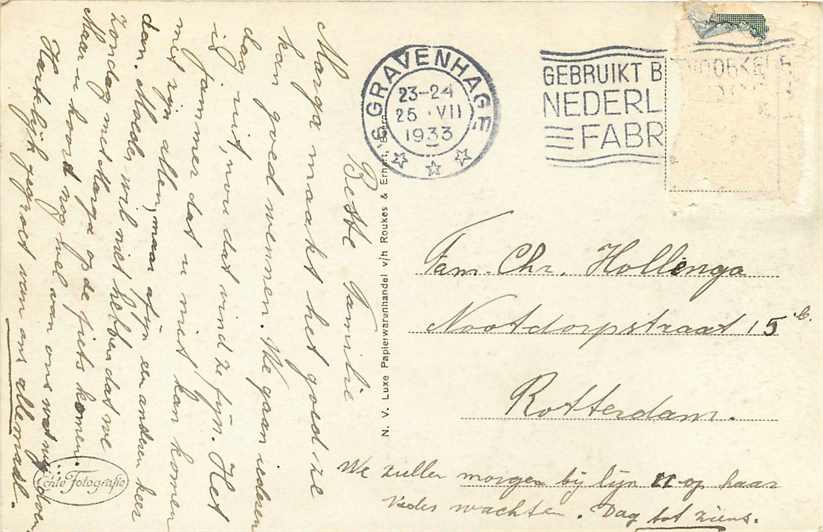 Beste Familie
Marga maakt het goed ze
kan goed wennen. We gaan iederen
dag uit, nou dat vind ze fijn. Het
is jammer dat u niet kan komen
met zijn allen, maar afijn een andere keer
dan. Moeder wil niet hebben dat we
zondag met Marga op de fiets komen.
Maar u hoort nog wel van ons wat wij doen
Hartelijk gegroet van ons allemaal.
Echte Fotografie
N. V. Luxe Papierwarenhandel v/h Roukes & Erhart, Baarn
'S GRAVENHAGE
23-24
25 · VII
1933
GEBRUIKT B
NEDERL
FABR
Fam. Chr. Hollenga
Nootdorpstraat 15 b.
Rotterdam.
We zullen morgen bij lijn 11 op haar
Vader wachten. Dag tot ziens.